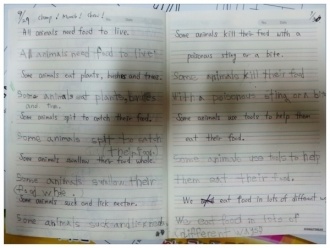 9/29 Chomp! Munch! Chew!
All animals need food to live.
All animals need food to live.
Some animals eat plants, and trees.
Some animals eat plants,
and
Some animals spit to catch their food.
Some animals spit to catch
their food.
Some animals swallow their food whole.
Some animals swallow their
food
Some animals suck and lick nectar.
Some animals suck and
Some animals kill their food with a
poisonous sting or a bite.
Some animals kill their food
with a poisonous sting or a bite
Some animals use tools to help them
eat their food.
Some animals use tools to help
them eat their food.
We eat food in lots of different
We eat food in lots of
different ways